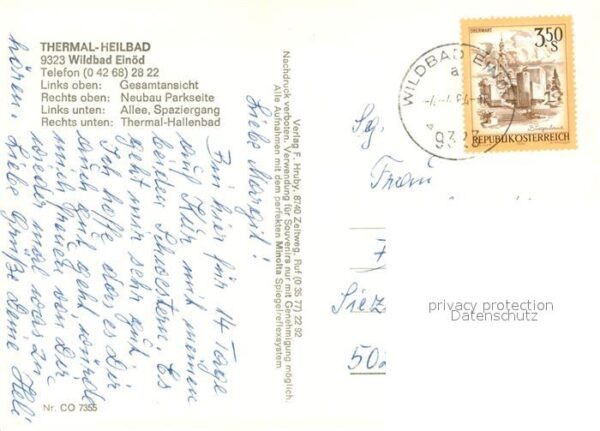 THERMAL-HEILBAD
9323 Wildbad Einöd
Telefon (0 42 68) 28 22
Links oben: Gesamtansicht
Rechts oben: Neubau Parkseite
Links unten: Allee, Spaziergang
Rechts unten: Thermal-Hallenbad
Liebe Margit!
Bin hier für 14 Tage
auf Kur mit meinen
beiden Schwestern. Es
geht mir sehr gut
Ich hoffe das es Dir
auch gut geht würde
mich freuen von Dir
wieder mal was zu
hören. Liebe Grüße Deine Heli
Nr. CO 7355
Verlag F. Hruby, 8740 Zeltweg, Ruf (0 35 77) 22 92
Nachdruck verboten. Verwendung für Souvenirs nur mit Genehmigung möglich.
Alle Aufnahmen mit dem perfekten Minolta Spiegelreflexsystem.
WILDBAD EINÖD
a
9323
3,50
S
REPUBLIK ÖSTERREICH
Frau
privacy protection
Datenschutz
502